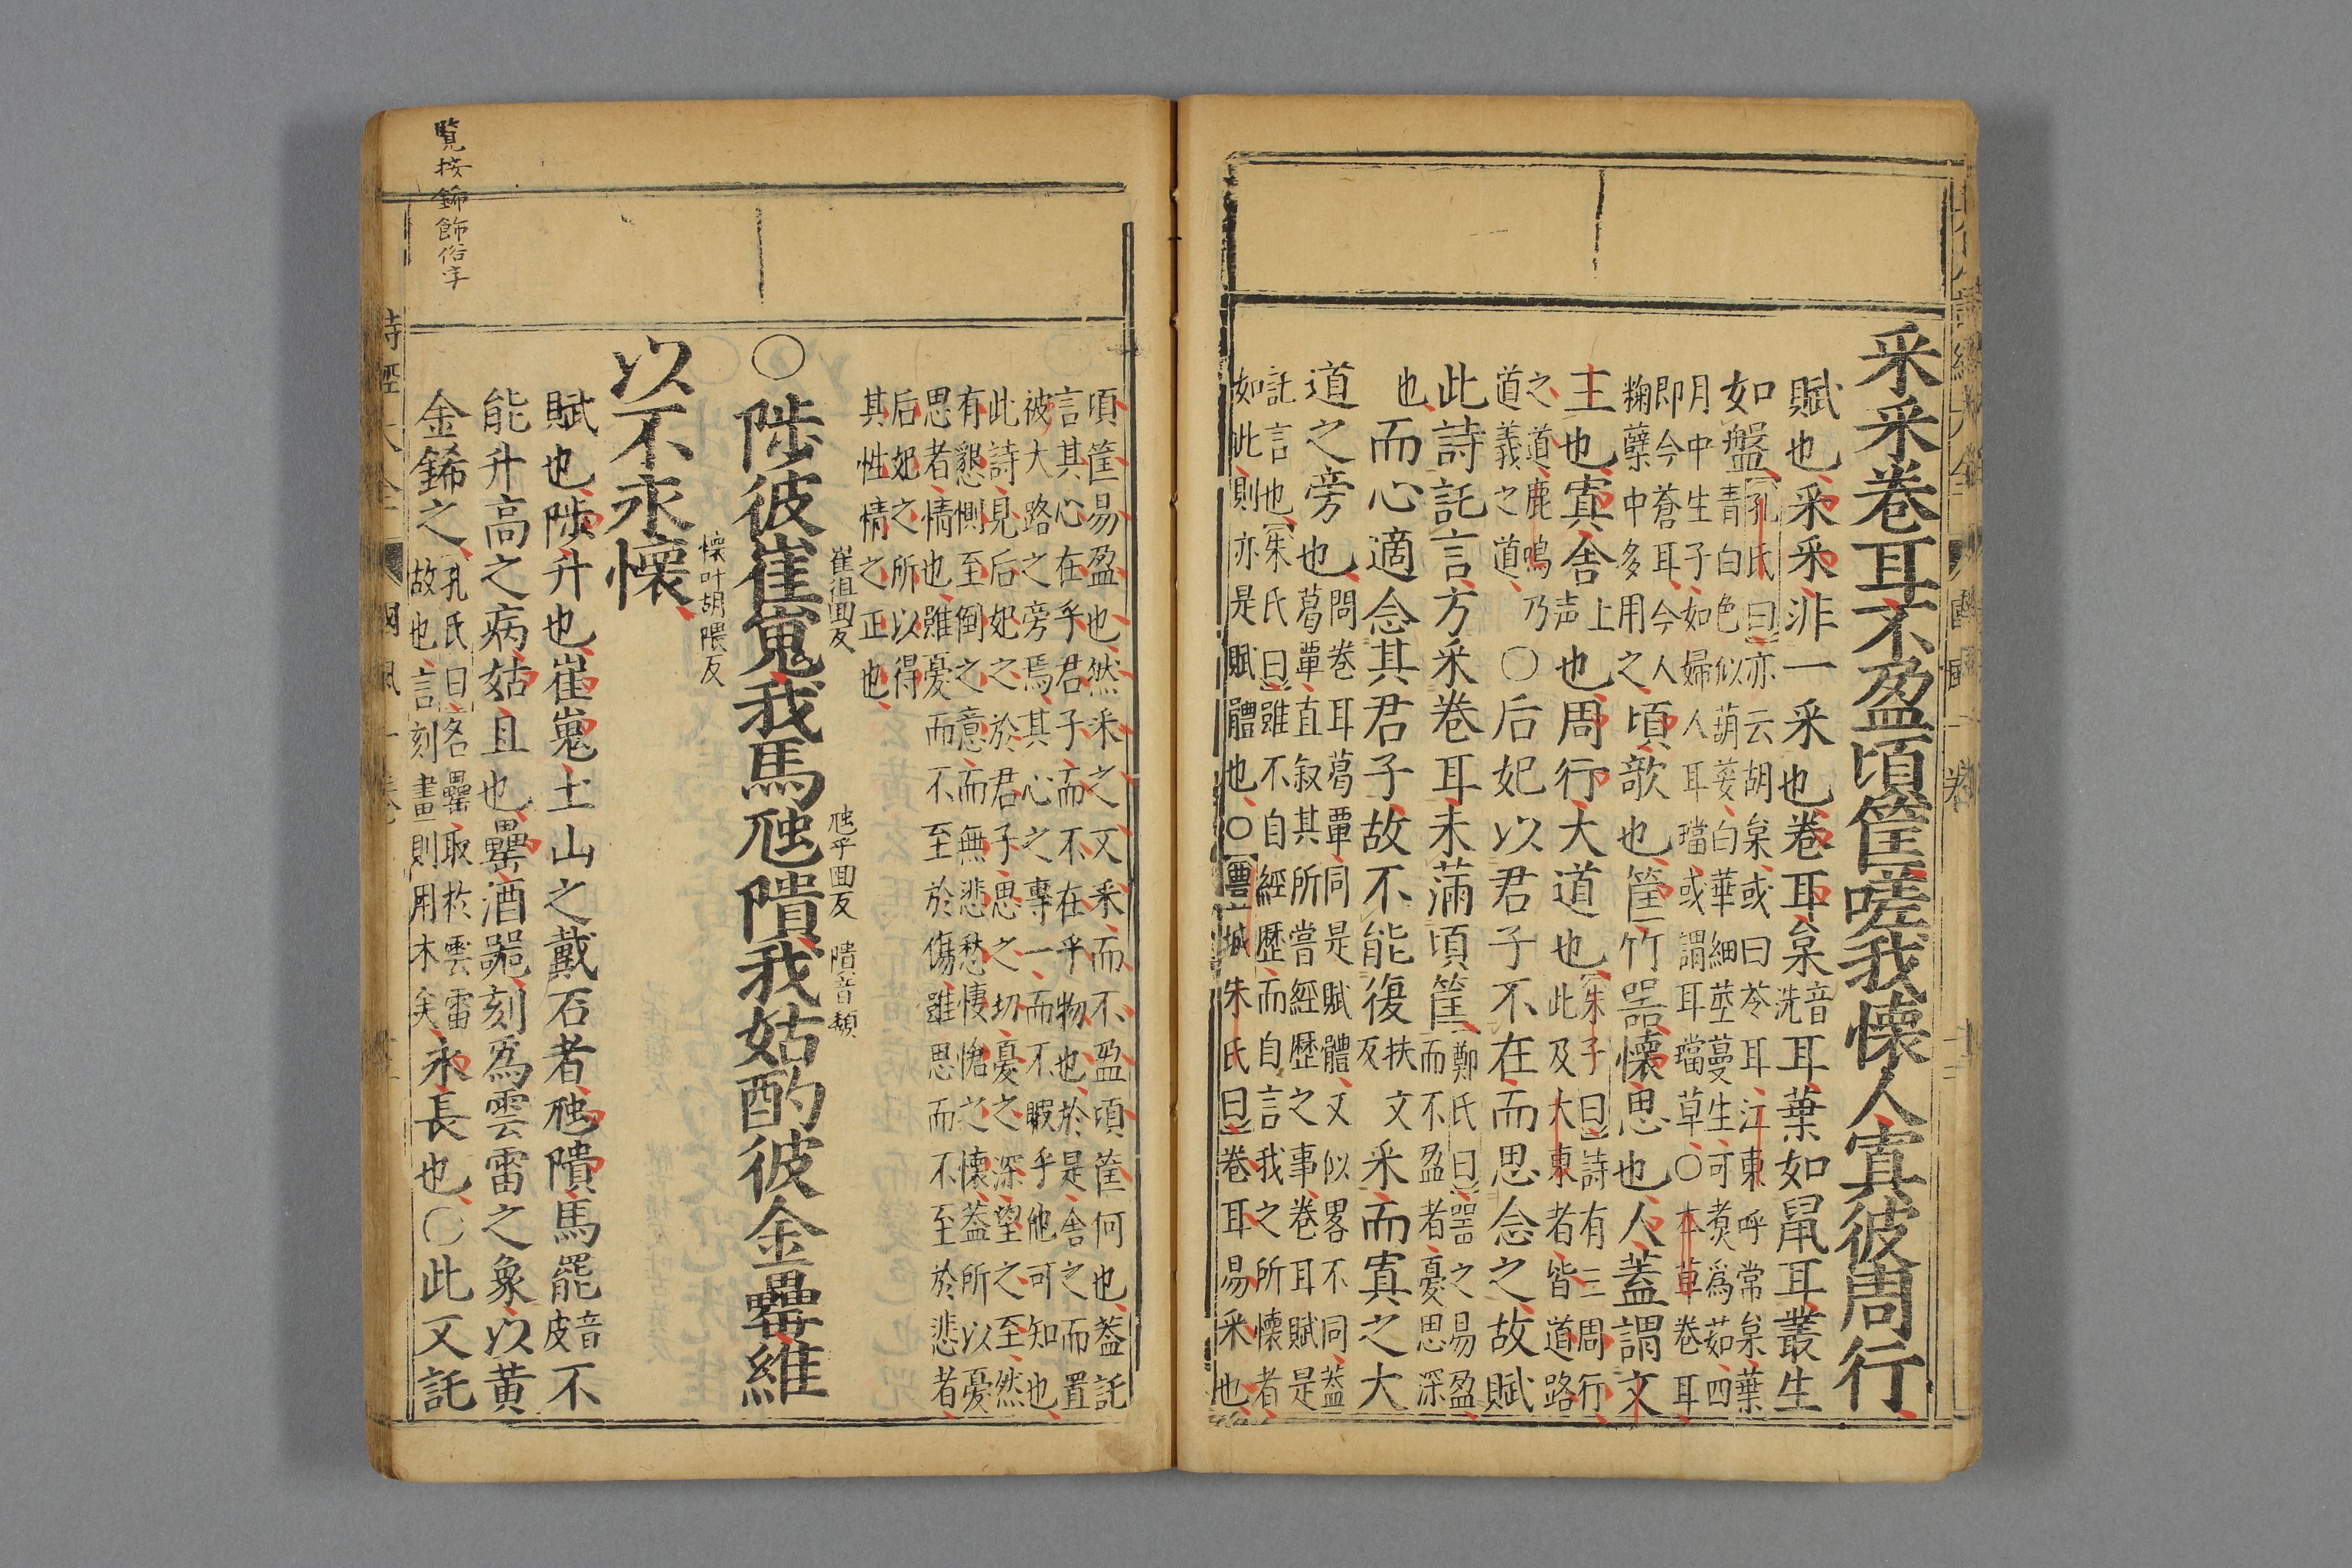 采采卷耳不盈頃筐嗟我懷人寘彼周行
賦也采采非一采也卷耳枲音洗耳葉如鼠耳叢生
如盤孔氏曰亦云胡枲或曰苓耳江東呼常枲葉
青白色似葫荽白華細莖蔓生可煑為茹四
月中生子如婦人耳璫或謂耳璫草○本草卷耳
即今蒼耳今人
麹糵中多用之頃欹也筐竹器懷思也人蓋謂文
王也寘舍上声也周行大道也朱子曰詩有三周行
此及大東者皆道路
之道鹿鳴乃
道義之道○后妃以君子不在而思念之故賦
此詩託言方采卷耳未滿頃筐鄭氏曰器之易盈
而不盈者憂思深
也而心適念其君子故不能復扶文反采而寘之大
道之旁也問卷耳葛覃同是賦體又似畧不同葢
葛覃直叙其所嘗經歷之事卷耳賦是
託言也朱氏曰雖不自經歷而自言我之所懷者
如此則亦是賦體也○豐城朱氏曰卷耳易采也
頃筐易盈也然采之又采而不盈頃筐何也葢託
言其心在乎君子而不在乎物也於是舍之而置
被大路之旁焉其心之專一而不暇乎他可知也
此詩見后妃之於君子思之切憂之深望之至然
有懇惻至倒之意而無悲愁悽愴之懷葢所以憂
思者情也雖憂而不至於傷雖思而不至於悲者
后妃之所以得
其性情之正也
崔徂回反
虺乎回反
隤音頽
○陟彼崔嵬我馬虺隤我姑酌彼金罍維
懷叶胡隈反
以不永懷
賦也陟升也崔嵬土山之戴石者虺隤馬罷音皮不
能升高之病姑且也罍酒器刻爲雲雷之象以黄
金鍗之孔氏曰名罍取於雲雷
故也言刻畫則用木矣永長也○此又託
覧按鍗飾俗字